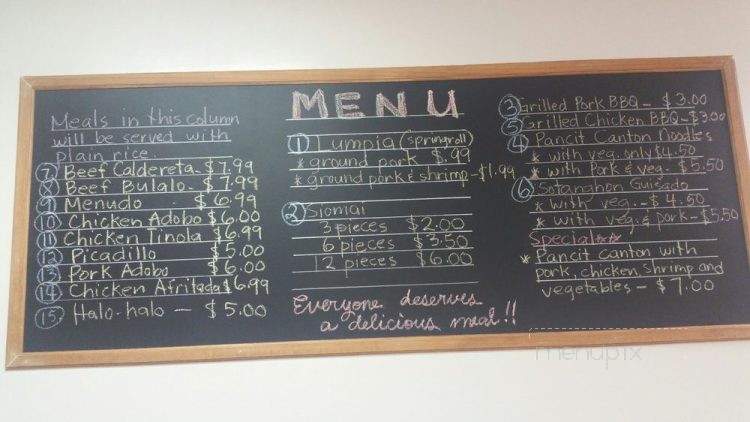 MENU
Meals in this column
will be served with
plain rice.
7 Beef Caldereta - $7.99
8 Beef Bulalo - $7.99
9 Menudo - $6.99
10 Chicken Adobo $6.00
11 Chicken Tinola $6.99
12 Picadillo $5.00
13 Pork Adobo $6.00
14 Chicken Afritada $6.99
15 Halo-halo - $5.00
1 Lumpia (springroll)
* ground pork $.99
* ground pork & shrimp - $1.99
2 Siomai
3 pieces $2.00
6 pieces $3.50
12 pieces $6.00
Everyone deserves
a delicious meal!!
3 Grilled Pork BBQ - $3.00
5 Grilled Chicken BBQ - $3.00
4 Pancit Canton Noodles
* with veg. only $4.50
* with Pork & veg. - $5.50
6 Sotanghon Guisado
* with veg. - $4.50
* with veg. & pork - $5.50
Special
* Pancit Canton with
pork, chicken, shrimp and
vegetables - $7.00
menupix